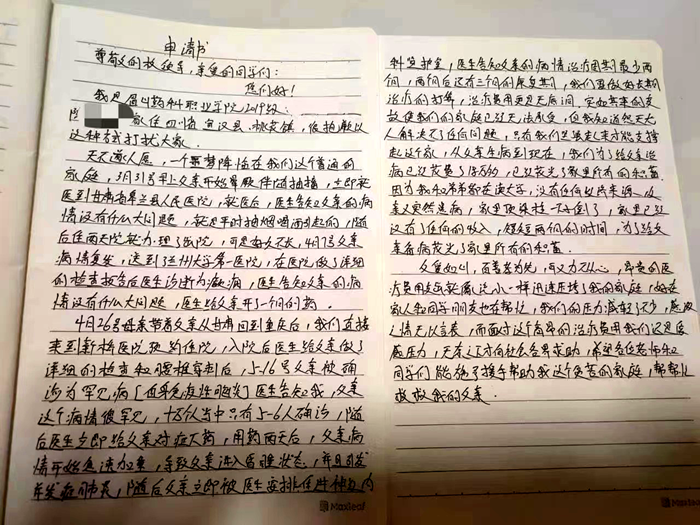 申请书
尊敬的校领导,亲爱的同学们:
您们好!
我是 科职业学院2019级
院 家住四川省宣汉县 镇,很抱歉以
这种方式打扰大家.
天不遂人愿,一个噩梦降临在我们这个普通的
家庭,3月31号早上父亲开始晕厥伴随抽搐,立即就
医到甘肃省 县人民医院,就医后,医生告知父亲的病
情没有什么大问题,就是平时抽烟喝酒引起的,随
后住两天院就办理了出院,可是好久不长,4月7号父亲
病情复发,送到兰州大学第一医院,在医院做了详细
的检查报告后医生诊断为癫痫,医生告知父亲的病
情没有什么大问题,医生给父亲开了一个月的药.
4月26号母亲带着父亲从甘肃回到重庆后,我们直接
来到新桥医院 住院,入院后医生给父亲做了
详细的检查和腰椎穿刺后,5-16号父亲被确
诊为罕见病[自身免疫性脑炎]医生告知我,父亲
这个病情很罕见,十万人当中只有5-6人确诊,随
后医生立即给父亲对症下药,用药两天后,父亲病
情开始急速加重,导致父亲进入昏睡状态,并且引发
并发症肺炎,随后父亲立即被医生安排住进神经内
科监护室,医生告知父亲的病情治疗周期最少两
个月,两个月后还有三个月的康复期,我们要做好长期
治疗的打算,治疗费用更是无底洞,突如其来的变
故使我们的家庭已经无法承受,但我知道怨天尤
人解决不了任何问题,只有我们坚强起来才能支撑
起这个家,从父亲生病到现在,我们为了给父亲治
病已经花费了 万,已经花光了家里所有的积蓄.
因为我和弟弟都在读大学,没有任何收入来源,父
亲又突然患病,家里顶梁柱一下子倒了,家里已经
没有了任何的收入,短短两个月的时间,为了给父
亲看病花光了家里所有的积蓄.
父爱如山,百善孝为先,可又力不从心,昂贵的医
疗费用就如 一样迅速压垮了我的家庭,好在
家人和同学朋友也在帮忙,我们的压力减轻了不少,感激
之情无以言表,而面对这个高昂的治疗费用我们还是倍
感压力,无奈之下才向社会各界求助,希望各位老师和
同学们能够伸出援手帮助我这个贫苦的家庭,帮帮忙
救救我的父亲.
Maxleaf
Maxleaf